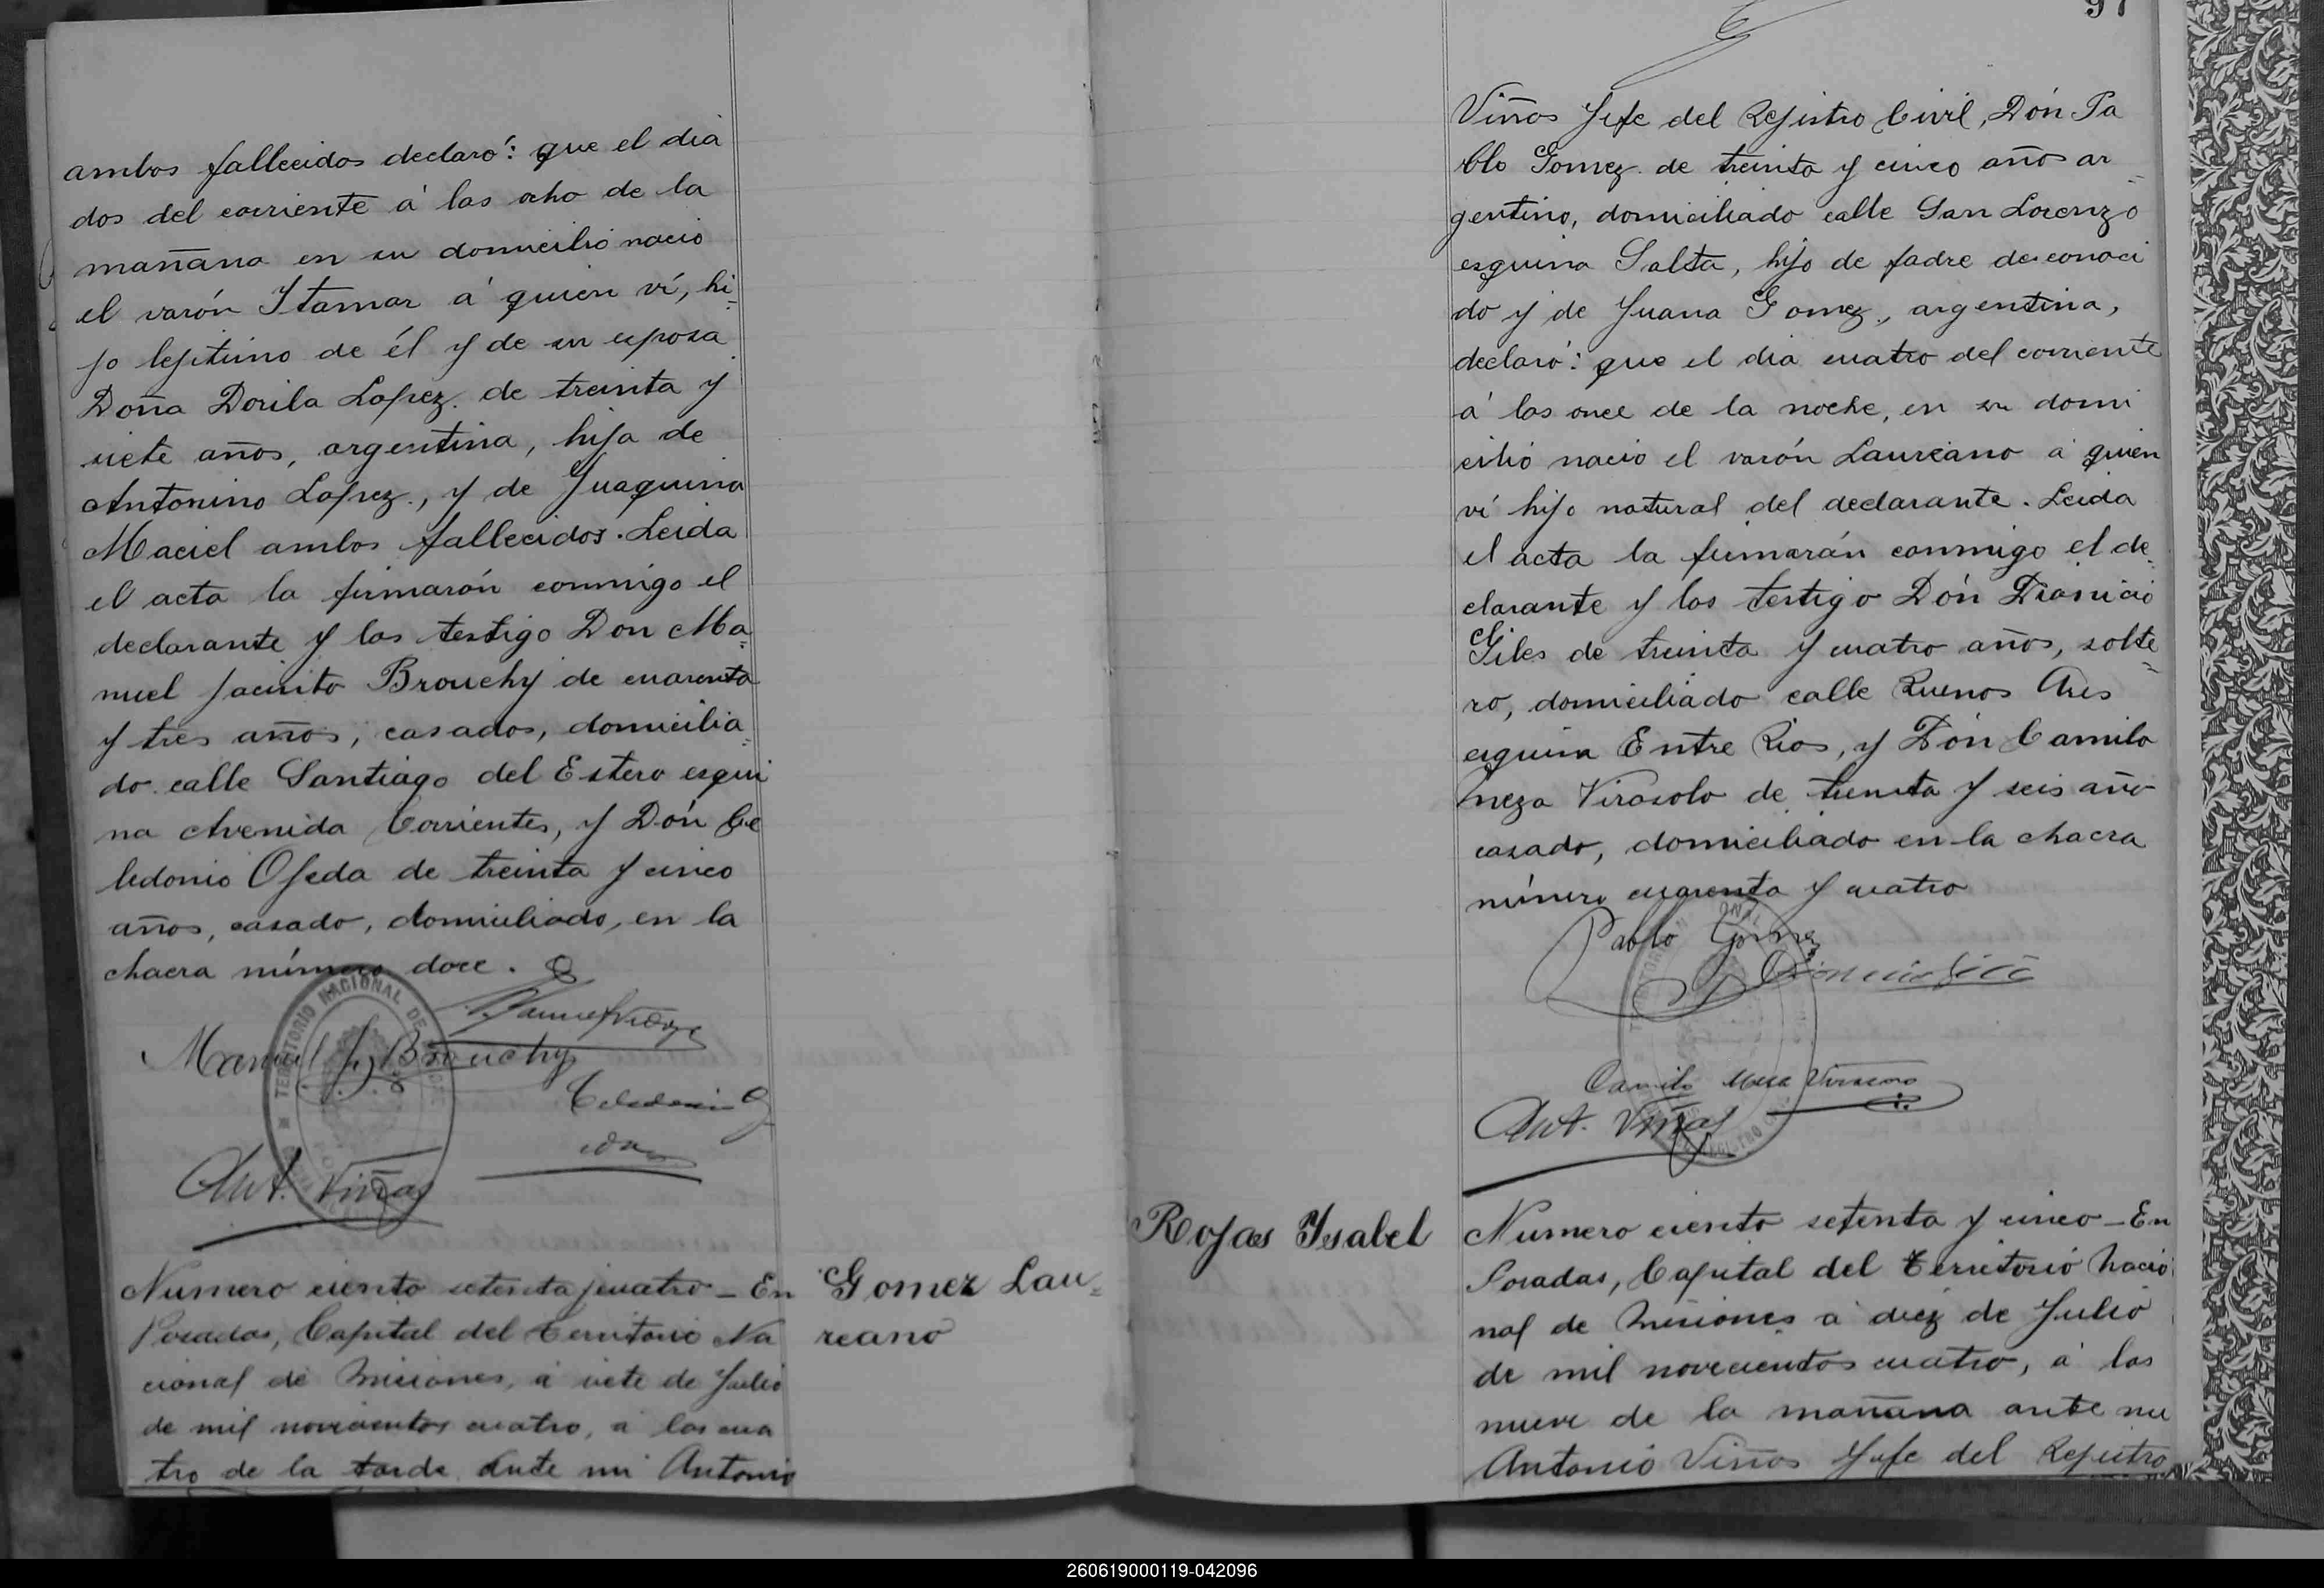 ambos fallecidos declaró: que el dia
dos del corriente á las ocho de la
mañana en su domicilio nació
el varón Itamar á quien ví, hi=
jo lejitimo de él y de su esposa
Doña Dorila Lopez. de treinta y
siete años, argentina, hija de
Antonino Lopez, y de Juaquina
Maciel ambos fallecidos. Leida
el acta la firmarón conmigo el
declarante y los testigo Don Ma=
nuel Jacinto Brouchy de cuarenta
y tres años, casados, domicilia=
do calle Santiago del Estero esqui
na Avenida Corrientes, y Dón Ce
ledonio Ojeda de treinta y cinco
años, casado, domiciliado, en la
chacra número doce.
Manuel J. Brouchy
Celedonio Oj
eda
Ant. Viñas
TERRITORIO NACIONAL DE
Numero ciento setenta y cuatro - En
Posadas, Capital del territorio Na
cional de Misiones, á siete de Julio
de mil novecientos cuatro, á las cua
tro de la tarde ante mi Antonio
Gomez Lau=
reano
97
Viños Jefe del Rejistro Civil, Dón Pa
blo Gomez. de treinta y cinco años ar=
gentino, domiciliado calle San Lorenzo
esquina Salta, hijo de padre desconoci
do y de Juana Gomez, argentina,
declaró: que el dia cuatro del corriente
á las once de la noche, en su domi
cilio nació el varón Laureano á quien
ví hijo natural del declarante. Leida
el acta la firmarán conmigo el de=
clarante y los testigo Dón Dionicio
Giles de treinta y cuatro años, solte=
ro, domiciliado calle Buenos Aires
esquina Entre Rios, y Dón Camilo
Meza Virasolo de treinta y seis año
casado, domiciliado en la chacra
número cuarenta y cuatro
Pablo Gomez
Camilo Meza Virasoro
Ant. Viñas
Rojas Isabel
Numero ciento setenta y cinco - En
Posadas, Capital del territorio Nacio
nal de Misiones á diez de Julio
de mil novecientos cuatro, á las
nueve de la mañana ante mi
Antonio Viños Jefe del Rejistro
260619000119-042096